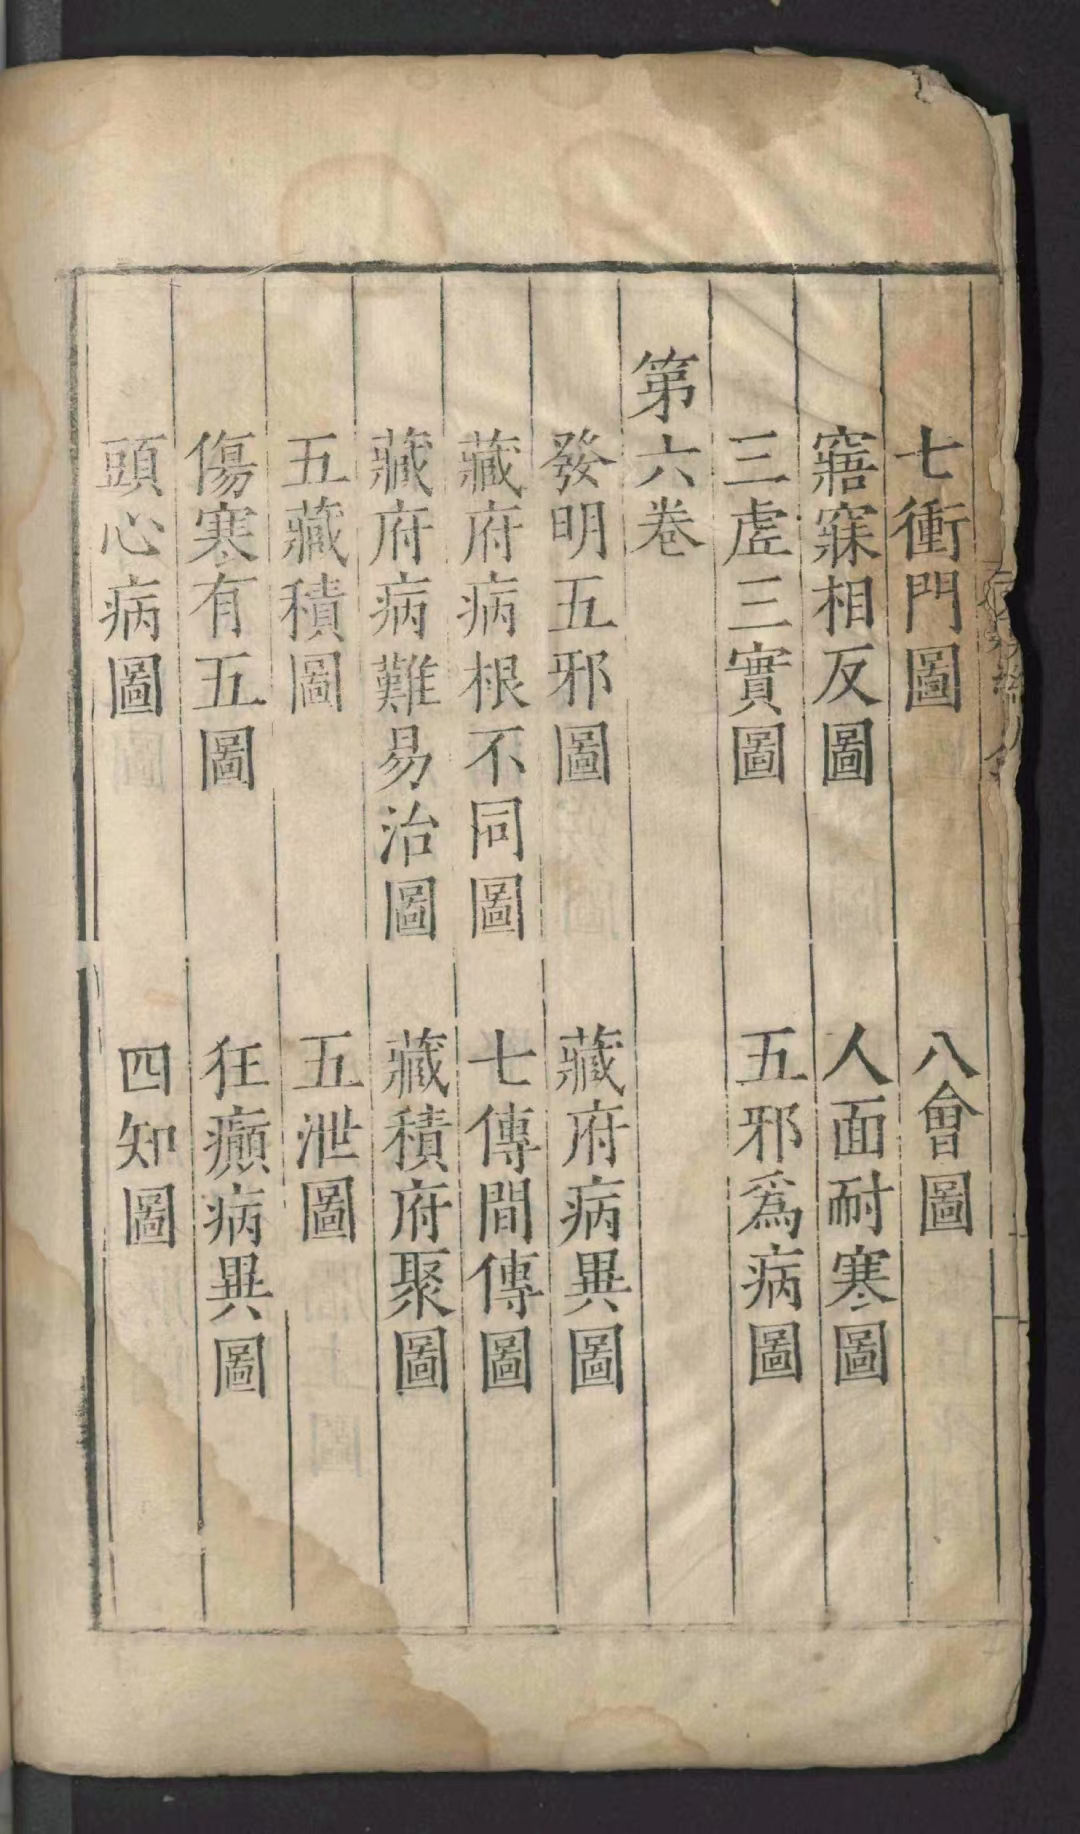 七衝門圖 八會圖
寤寐相反圖 人面耐寒圖
三虛三實圖 五邪爲病圖
第六卷
發明五邪圖 藏府病異圖
藏府病根不同圖 七傳間傳圖
藏府病難易治圖 藏積府聚圖
五藏積圖 五泄圖
傷寒有五圖 狂癲病異圖
頭心病圖 四知圖